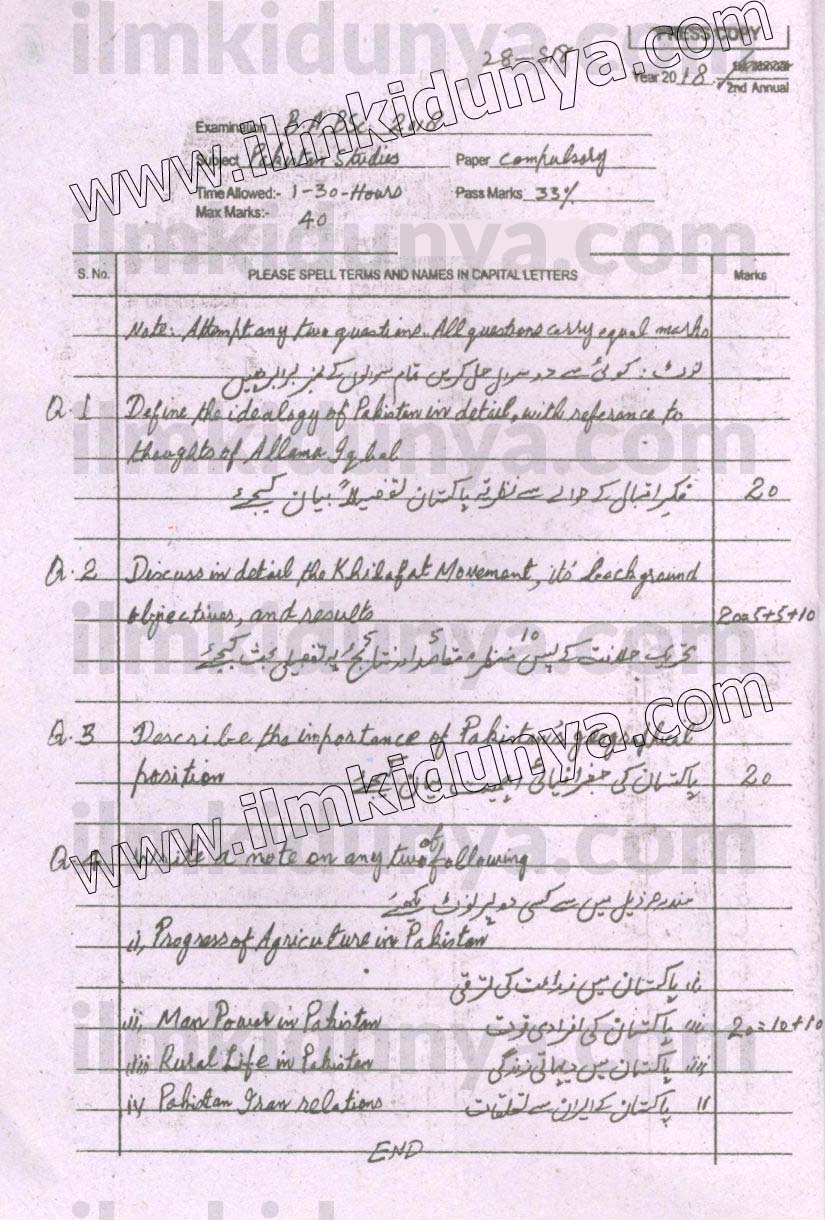 PRESS COPY
28-S/18
Year 2018
2nd Annual
Examination B.A/BSc. 2018
Subject Pakistan Studies Paper Compulsory
Time Allowed:- 1-30-Hours Pass Marks 33%
Max Marks:- 40
S. No. PLEASE SPELL TERMS AND NAMES IN CAPITAL LETTERS Marks
Note: Attempt any two questions. All questions carry equal marks
نوٹ: کوئی سے دو سوال حل کریں تمام سوالوں کے نمبر برابر ہیں
Q.1 Define the idealogy of Pakistan in detail, with reference to
thoughts of Allama Iqbal
فکرِ اقبال کے حوالے سے نظریہ پاکستان تفصیلاً بیان کیجئے 20
Q.2 Discuss in detail the Khilafat Movement, its' background
objectives, and results 20=5+5+10
تحریک خلافت کے پس منظر، مقاصد اور نتائج پر تفصیلی بحث کیجئے
Q.3 Describe the importance of Pakistan's geographical
position پاکستان کی جغرافیائی اہمیت بیان کیجئے 20
Q.4 Write a note on any two of following
مندرجہ ذیل میں سے کسی دو پر نوٹ لکھیئے
i, Progress of Agriculture in Pakistan
i, پاکستان میں زراعت کی ترقی
ii, Man Power in Pakistan ii, پاکستان کی افرادی قوت 20=10+10
iii, Rural Life in Pakistan iii, پاکستان میں دیہاتی زندگی
iv Pakistan Iran relations پاکستان کے ایران سے تعلقات
END
www.ilmkidunya.com
www.ilmkidunya.com
ilmkidunya.com